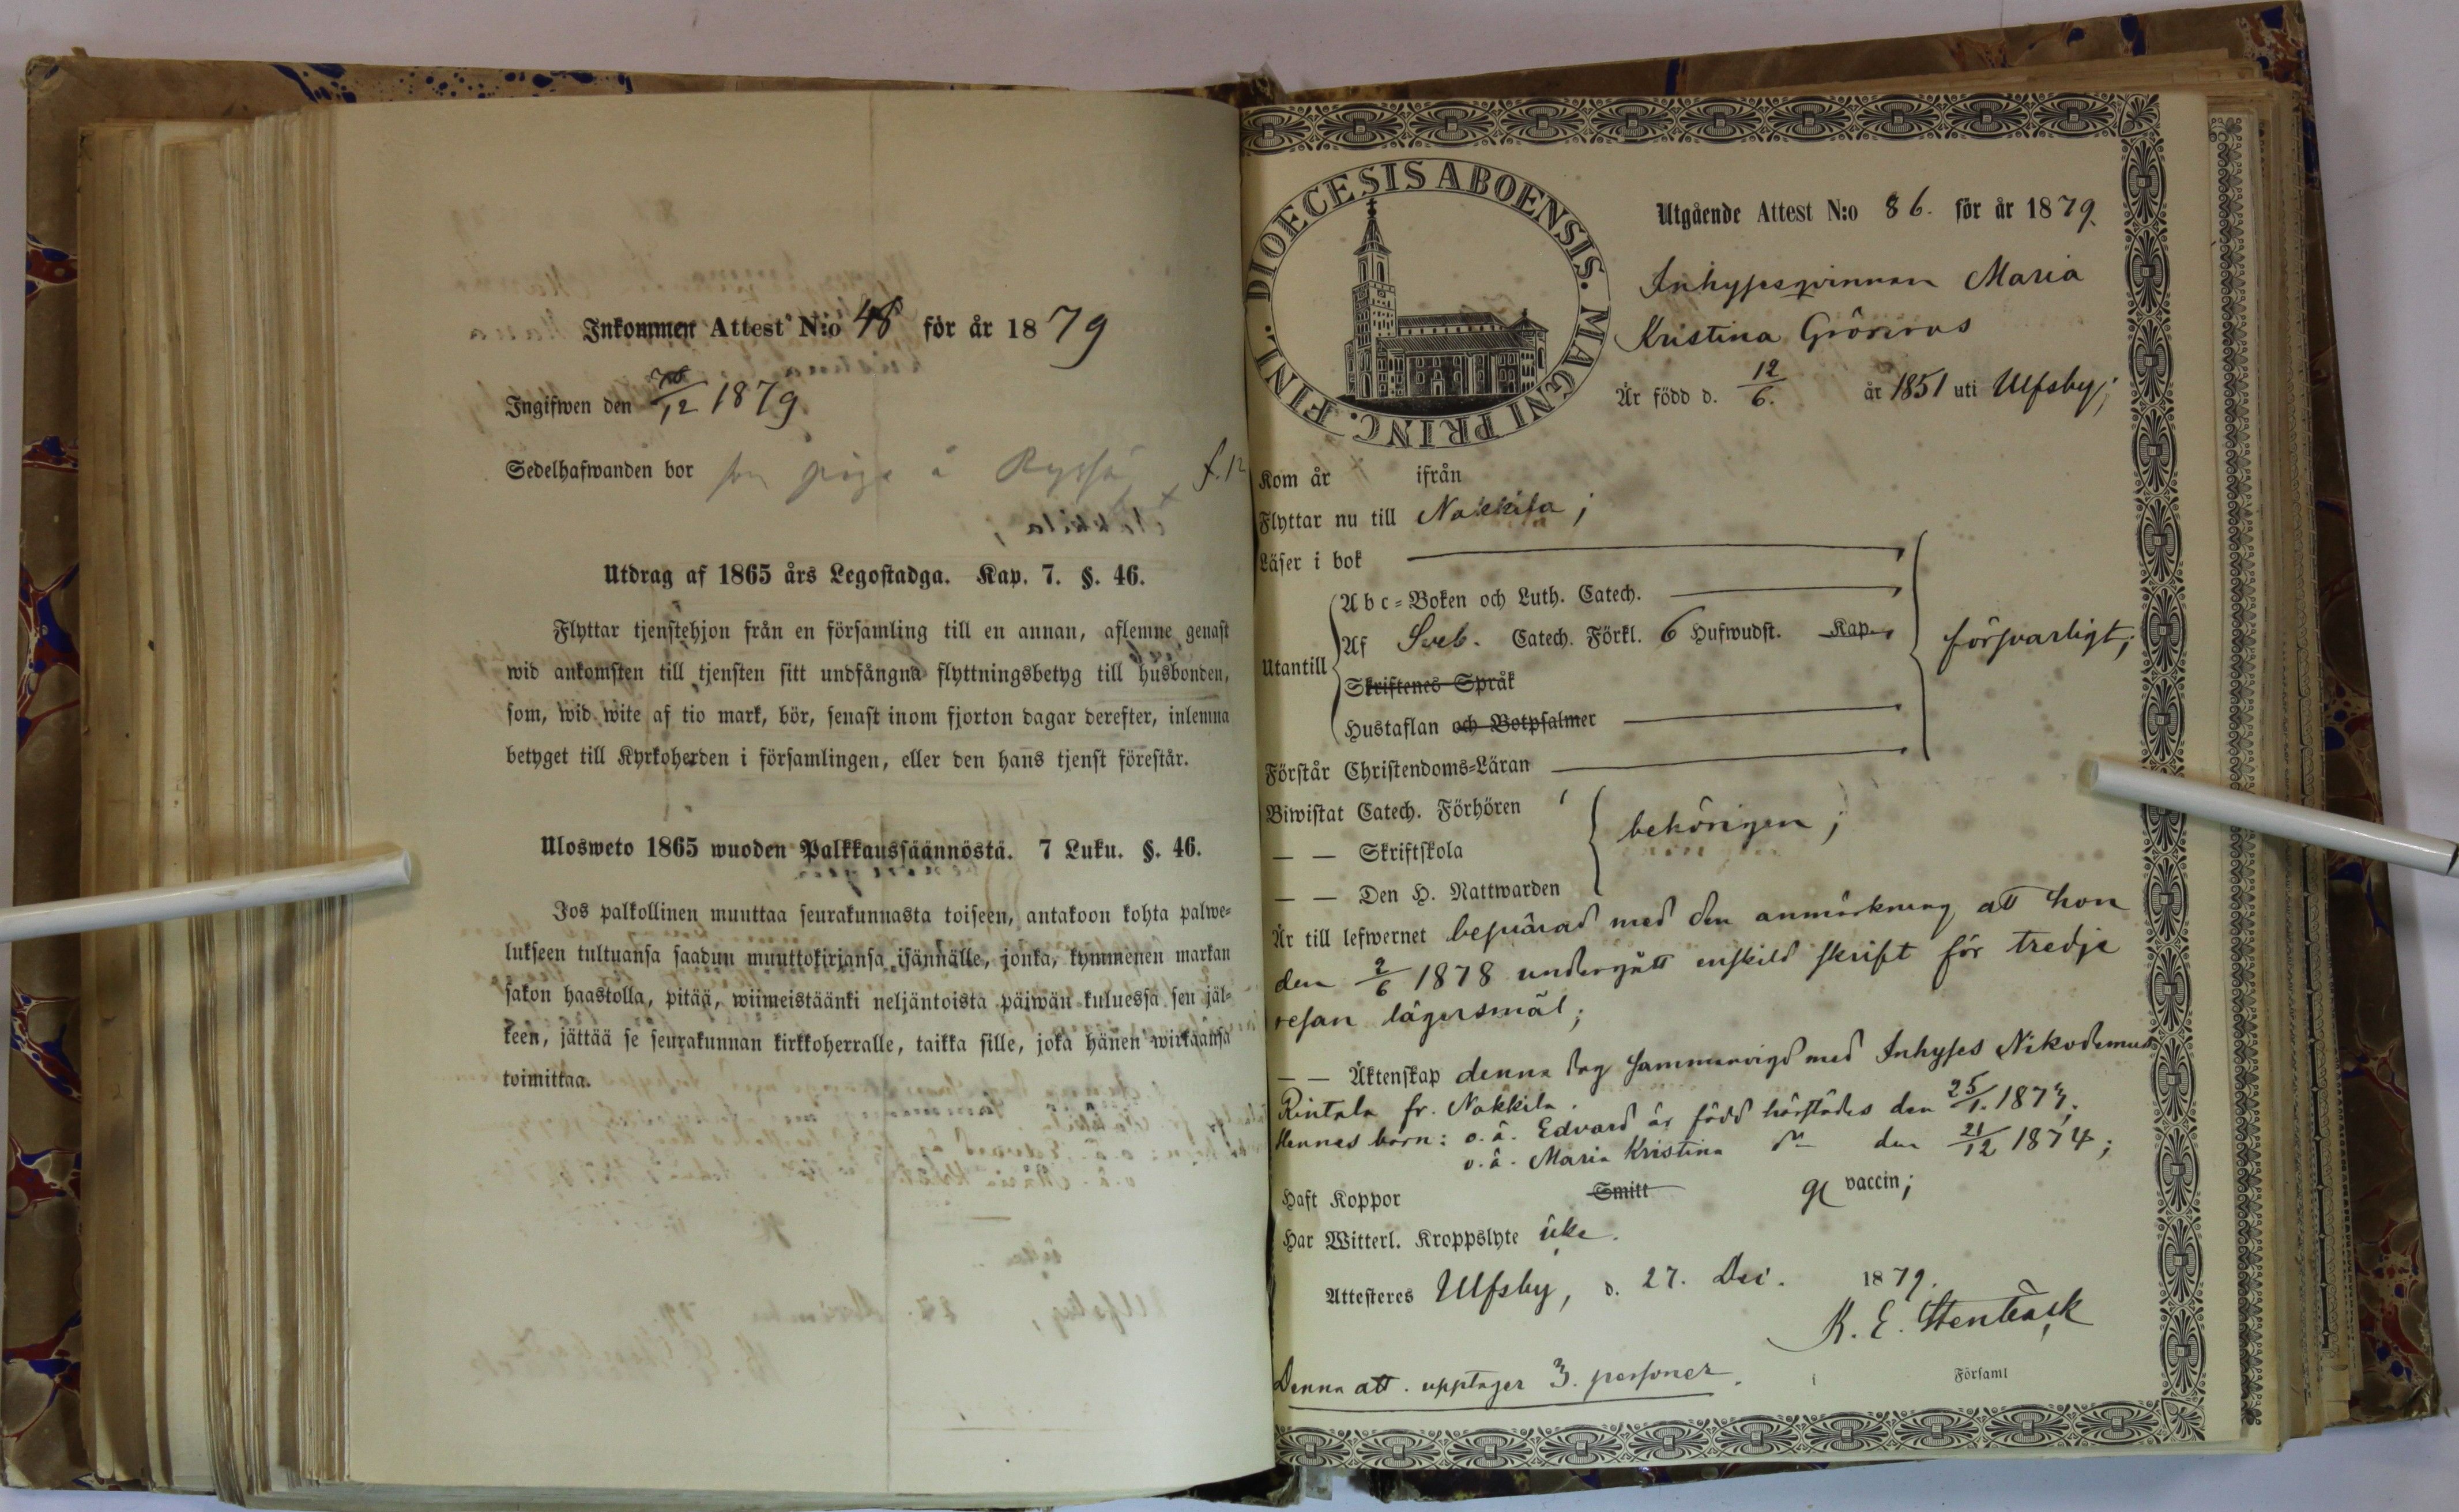 Inkommen Attest N:o 48 för år 1879
Ingifwen den /12 1879
Sedelhafwanden bor som piga å f. 12
Utdrag af 1865 års Legostadga. Kap. 7. §. 46.
Flyttar tjenstehjon från en församling till en annan, aflemne genast
wid ankomsten till tjensten sitt undfångna flyttningsbetyg till husbonden,
som, wid wite af tio mark, bör, senast inom fjorton dagar derefter, inlemna
betyget till Kyrkoherden i församlingen, eller den hans tjenst förestår.
Ulosweto 1865 wuoden Palkkaussäännöstä. 7 Luku. §. 46.
Jos palkollinen muuttaa seurakunnasta toiseen, antakoon kohta palwe-
lukseen tultuansa saadun muuttokirjansa isännälle, jonka, kymmenen markan
sakon haastolla, pitää, wiimeistäänki neljäntoista päiwän kuluessa sen jäl-
keen, jättää se seurakunnan kirkkoherralle, taikka sille, joka hänen wirkaansa
toimittaa.
DIOECESIS ABOENSIS. MAGNI PRINC. FINL.
Utgående Attest N:o 86. för år 1879.
Inhysesqvinnan Maria
Kristina Grönroos
Är född d. 12/6. år 1851 uti Ulfsby;
Kom år ifrån
Flyttar nu till Nakkila;
Läser i bok
Utantill
Abc-Boken och Luth. Catech.
Af Sveb. Catech. Förkl. 6 Hufwudst. Kap.
Skriftenes Språk
Hustaflan och Botpsalmer
försvarligt;
Förstår Christendoms-Läran
Biwistat Catech. Förhören
— — Skriftskola
— — Den H. Nattwarden
behörigen;
Är till lefwernet beqvärad med den anmärkning att hon
den 2/6 1878 undergått enskild skrift för tredje
resan lägersmål;
— — Äktenskap denna dag sammanvigd med Inhyses Nikodemus
Rintala fr. Nakkila.
Hennes barn: o.ä. Edvard är född härstädes den 25/1. 1873;
o.ä. Maria Kristina dn den 21/12 1874;
Haft Koppor Smitt gl vaccin;
Har Witterl. Kroppslyte icke.
Attesteres Ulfsby, d. 27. Dec. 1879.
K. E. Stenbäck
Denna att. upptager 3. personer.
i Församl